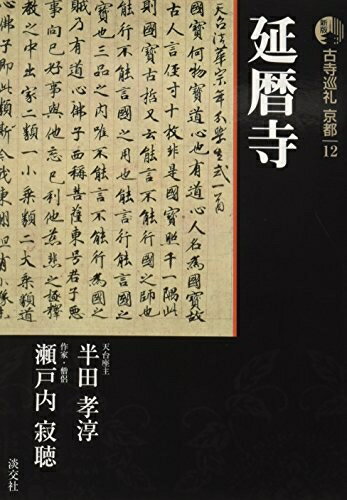 新版
古寺巡礼 京都 12
延暦寺
天台法華宗年分學生式一首
國寶何物寶道心也有道心人名為國寶故
古人言徑寸十枚非是國寶照千一隅此則
國寶古哲又云能言不能行國之師也
能行不能言國之用也能行能言國之
寶也三品之内唯不能言不能行為國之
有道心佛子西稱菩薩東号君子惡
事向己好事與他忘己利他慈悲之極釋
教之中出家二類一小乘類二大乘類道
心佛子即此
天台座主
半田 孝淳
作家・僧侶
瀬戸内 寂聴
淡交社